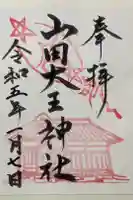 奉拝
山田天王神社
令和五年一月七日